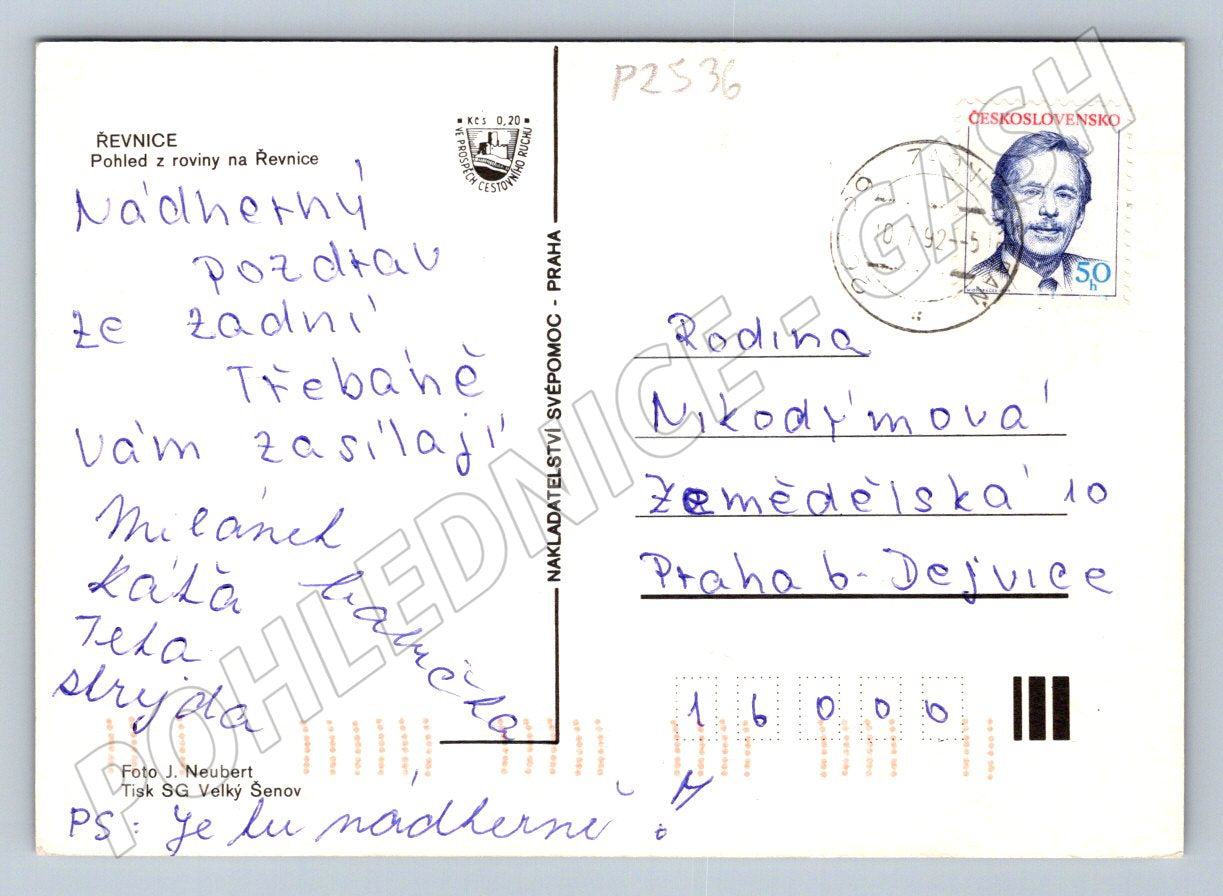 P2536
ŘEVNICE
Pohled z roviny na Řevnice
Kčs 0,20
VE PROSPĚCH CESTOVNÍHO RUCHU
ČESKOSLOVENSKO
50
h
92-5
Nádherný
pozdrav
ze zadní
Třebáně
Vám zasílají
Milánek
Káťa
Teta
strýda
NAKLADATELSTVÍ SVÉPOMOC - PRAHA
Rodina
Nikodýmová
Zemědělská 10
Praha 6- Dejvice
16000
Foto J. Neubert
Tisk SG Velký Šenov
PS: Je tu nádherně!
POHLEDNICE - GASH